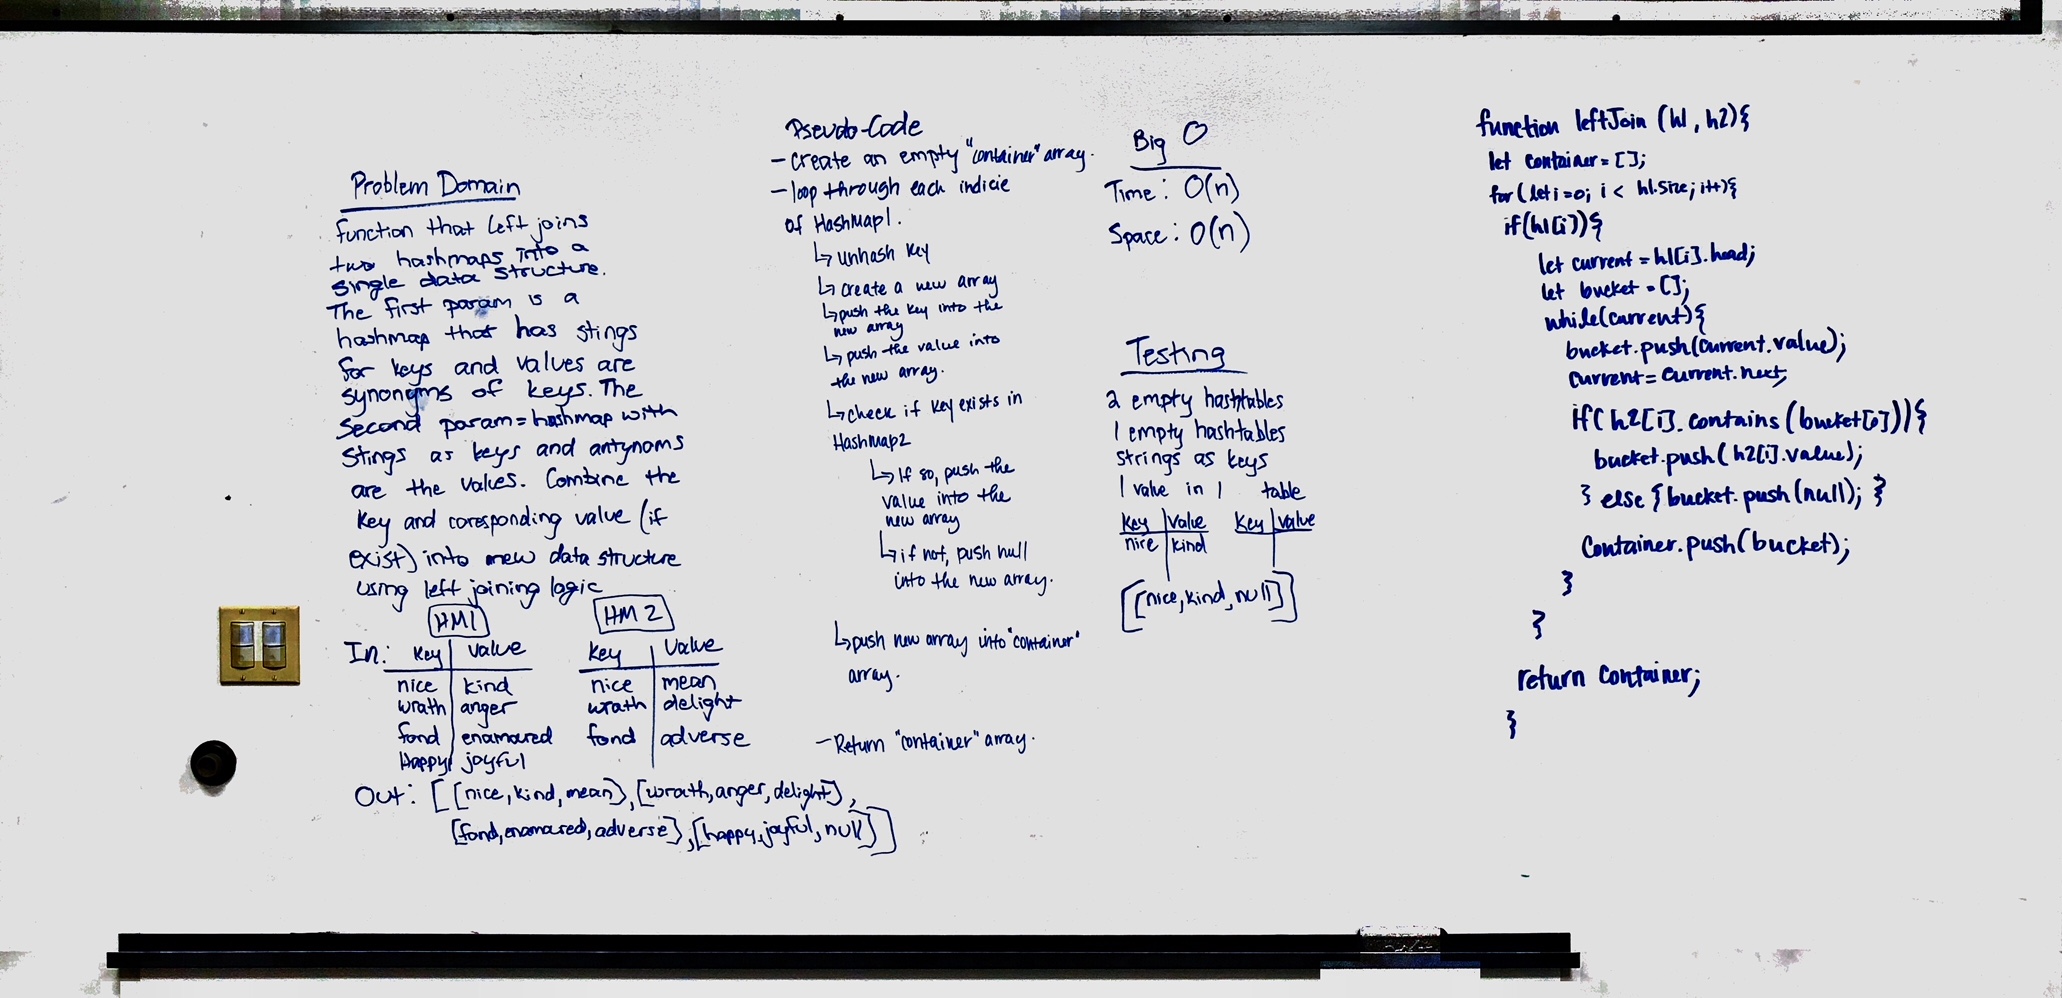 Problem Domain
function that left joins
two hashmaps into a
single data structure.
The first param is a
hashmap that has stings
for keys and values are
synonyms of keys. The
second param = hashmap with
Stings as keys and antynoms
are the values. Combine the
key and coresponding value (if
exist) into new data structure
using left joining logic
HM1 HM2
In: key | value key | Value
nice | kind nice | mean
wrath | anger wrath | delight
fond | enamoured fond | adverse
Happy | joyful
Out: [[nice, kind, mean], [wrath, anger, delight],
[fond, enamoured, adverse], [happy, joyful, null]]
Pseudo-Code
- Create an empty "container" array.
- loop through each indicie
of HashMap1.
↳ unhash key
↳ create a new array
↳ push the key into the
new array
↳ push the value into
the new array.
↳ check if key exists in
HashMap2
↳ If so, push the
value into the
new array
↳ if not, push null
into the new array.
↳ push new array into "container"
array.
- Return "container" array.
Big O
Time: O(n)
Space: O(n)
Testing
2 empty hashtables
1 empty hashtables
strings as keys
1 value in 1 table
key | value key | value
nice | kind
[[nice, kind, null]]
function leftJoin (h1, h2){
let container = [];
for (let i=0; i < h1.size; i++){
if(h1[i]){
let current = h1[i].head;
let bucket = [];
while(current){
bucket.push(current.value);
current = current.next;
if( h2[i].contains(bucket[0])){
bucket.push(h2[i].value);
} else { bucket.push(null); }
Container.push(bucket);
}
}
return container;
}